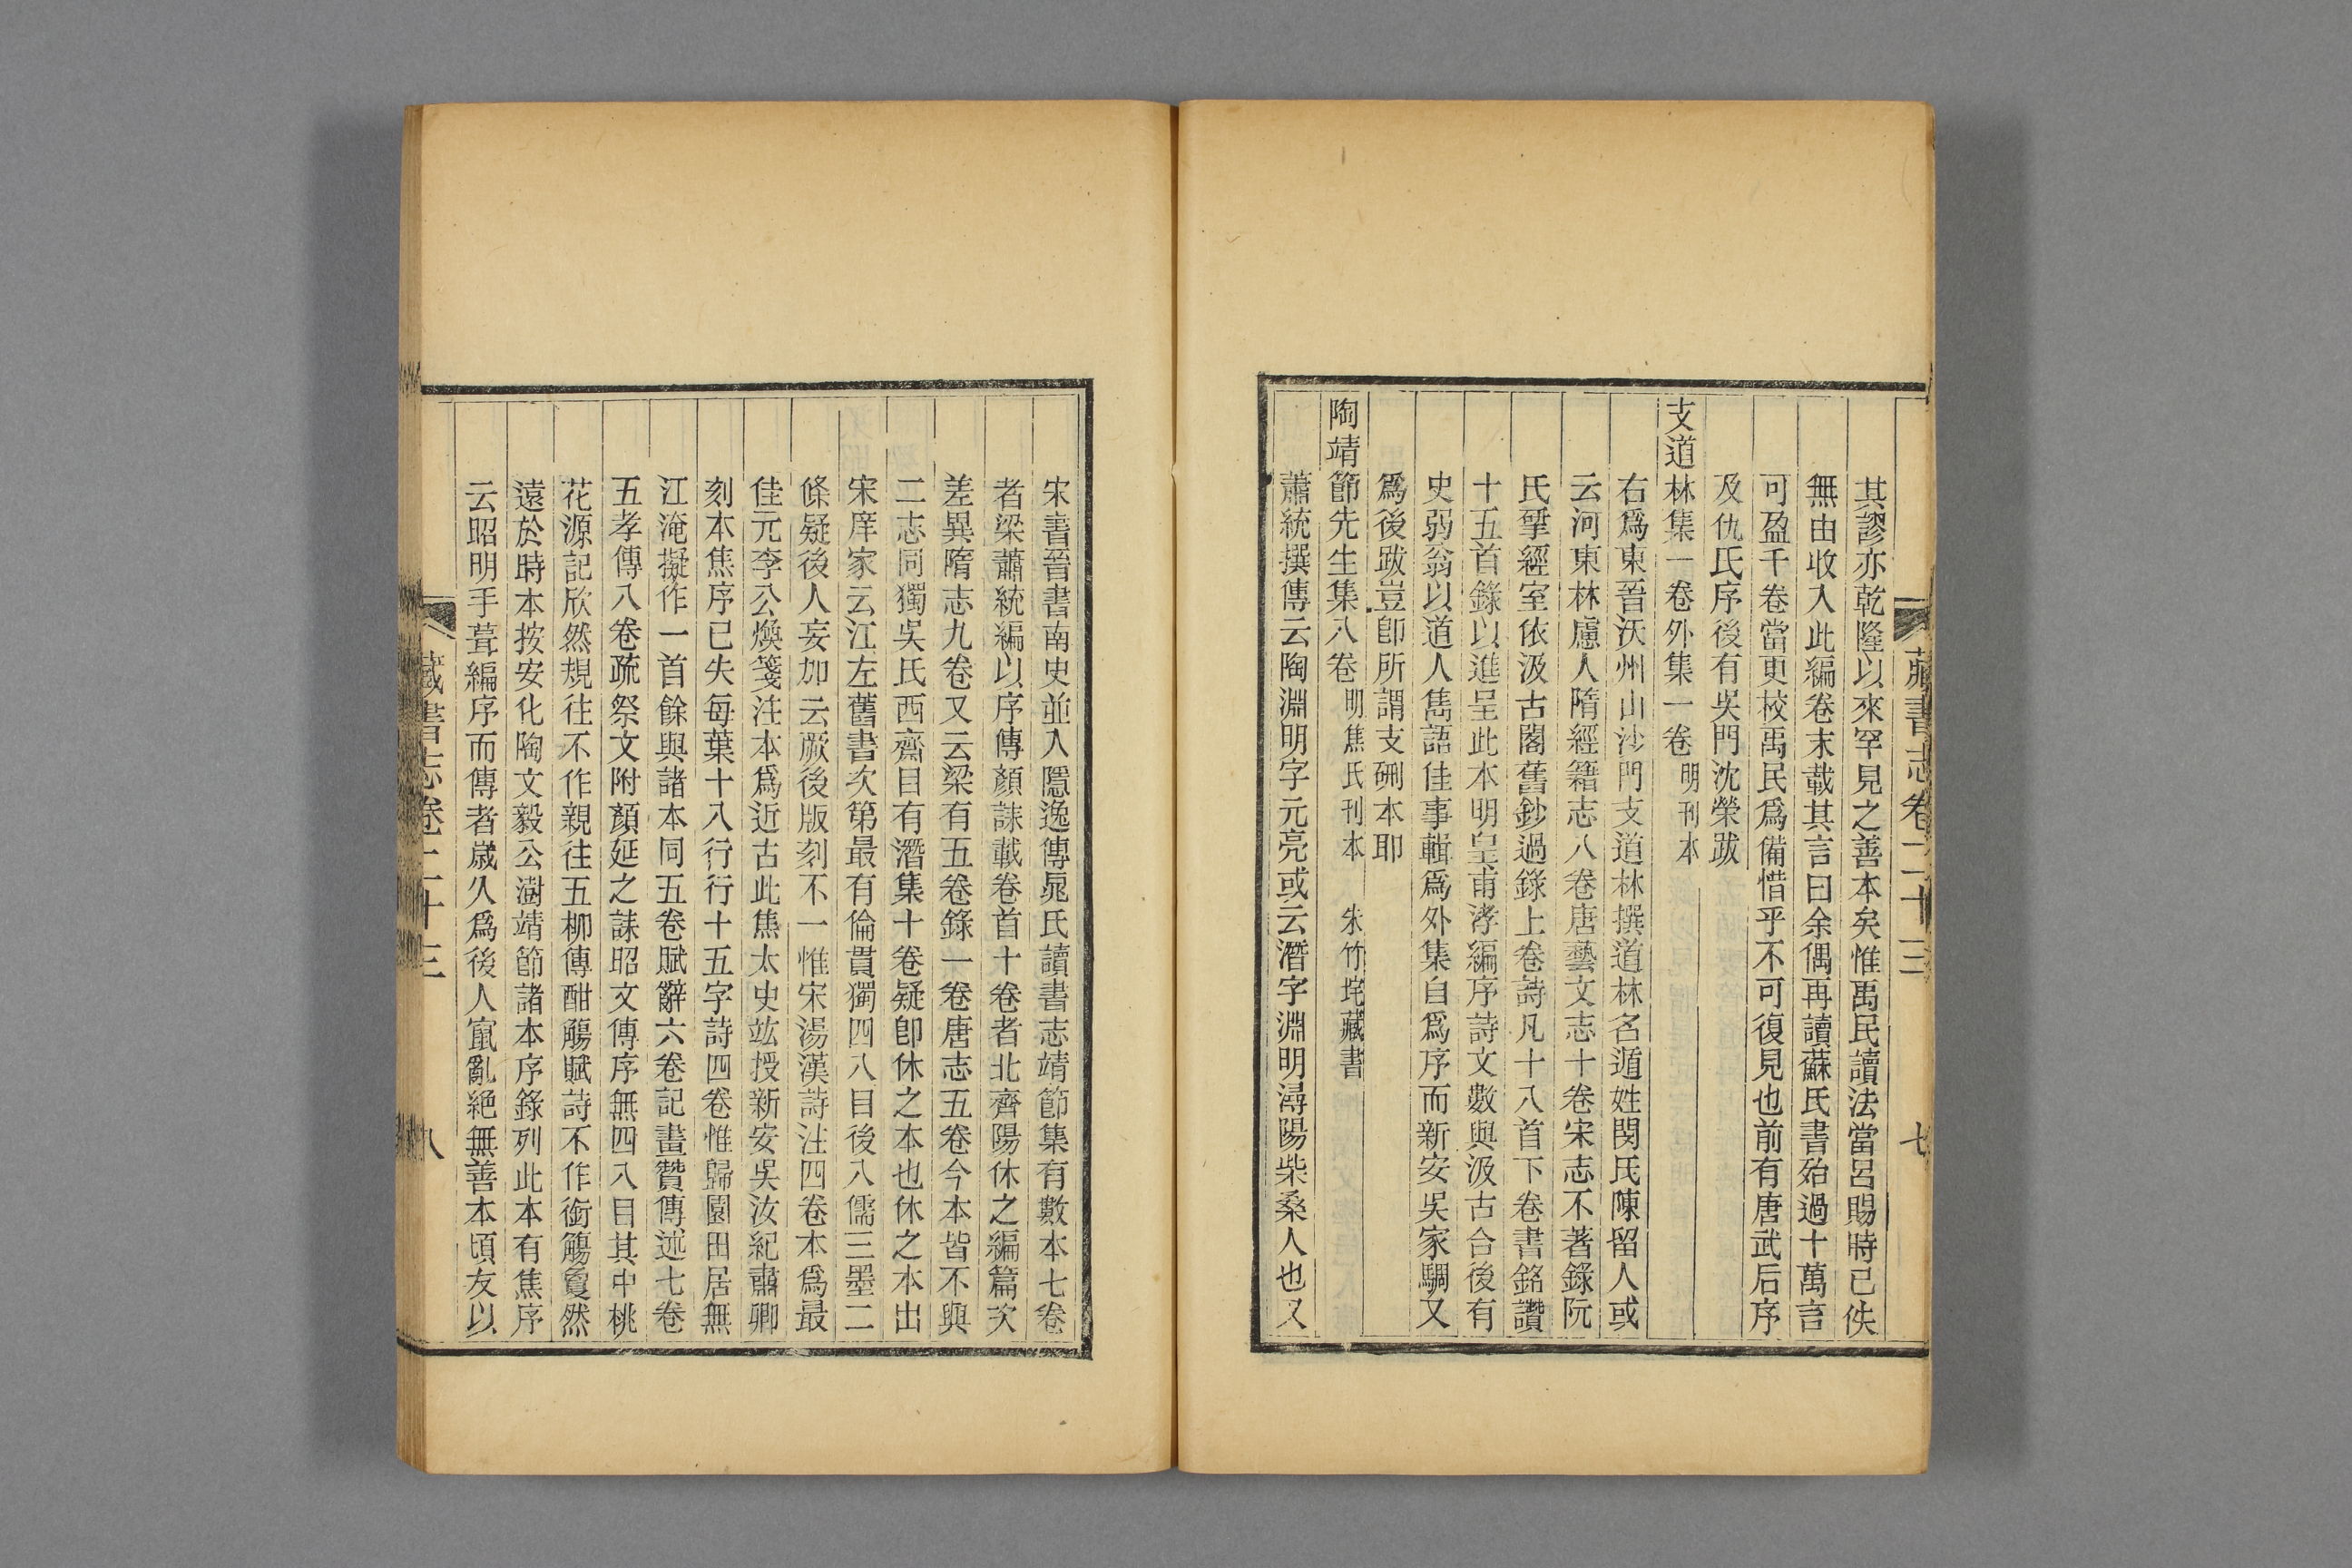 藏書志卷二十三 七
其謬亦乾隆以來罕見之善本矣惟禹民讀法當呂賜時已佚
無由收入此編卷末載其言曰余偶再讀蘇氏書殆過十萬言
可盈千卷當更校禹民爲備惜乎不可復見也前有唐武后序
及仇氏序後有吳門沈榮跋
支道林集一卷外集一卷 明刊本
右爲東晉沃州山沙門支道林撰道林名遁姓閔氏陳留人或
云河東林慮人隋經籍志八卷唐藝文志十卷宋志不著錄阮
氏揅經室依汲古閣舊鈔過錄上卷詩凡十八首下卷書銘讚
十五首錄以進呈此本明皇甫涍編序詩文數與汲古合後有
史弱翁以道人雋語佳事輯爲外集自爲序而新安吳家騆又
爲後跋豈卽所謂支硎本耶
陶靖節先生集八卷 明焦氏刊本 朱竹垞藏書
蕭統撰傳云陶淵明字元亮或云潛字淵明潯陽柴桑人也又
宋書晉書南史並入隱逸傳晁氏讀書志靖節集有數本七卷
者梁蕭統編以序傳顏誄載卷首十卷者北齊陽休之編篇次
差異隋志九卷又云梁有五卷錄一卷唐志五卷今本皆不與
二志同獨吳氏西齋目有潛集十卷疑卽休之本也休之本出
宋庠家云江左舊書次第最有倫貫獨四八目後八儒三墨二
條疑後人妄加云厥後版刻不一惟宋湯漢詩注四卷本爲最
佳元李公煥箋注本爲近古此焦太史竑授新安吳汝紀肅卿
刻本焦序已失每葉十八行行十五字詩四卷惟歸園田居無
江淹擬作一首餘與諸本同五卷賦辭六卷記畫贊傳述七卷
五孝傳八卷疏祭文附顏延之誄昭文傳序無四八目其中桃
花源記欣然規往不作親往五柳傳酣觴賦詩不作銜觴敻然
遠於時本按安化陶文毅公澍靖節諸本序錄列此本有焦序
云昭明手葺編序而傳者歲久爲後人竄亂絕無善本頃友以
藏書志卷二十三 八